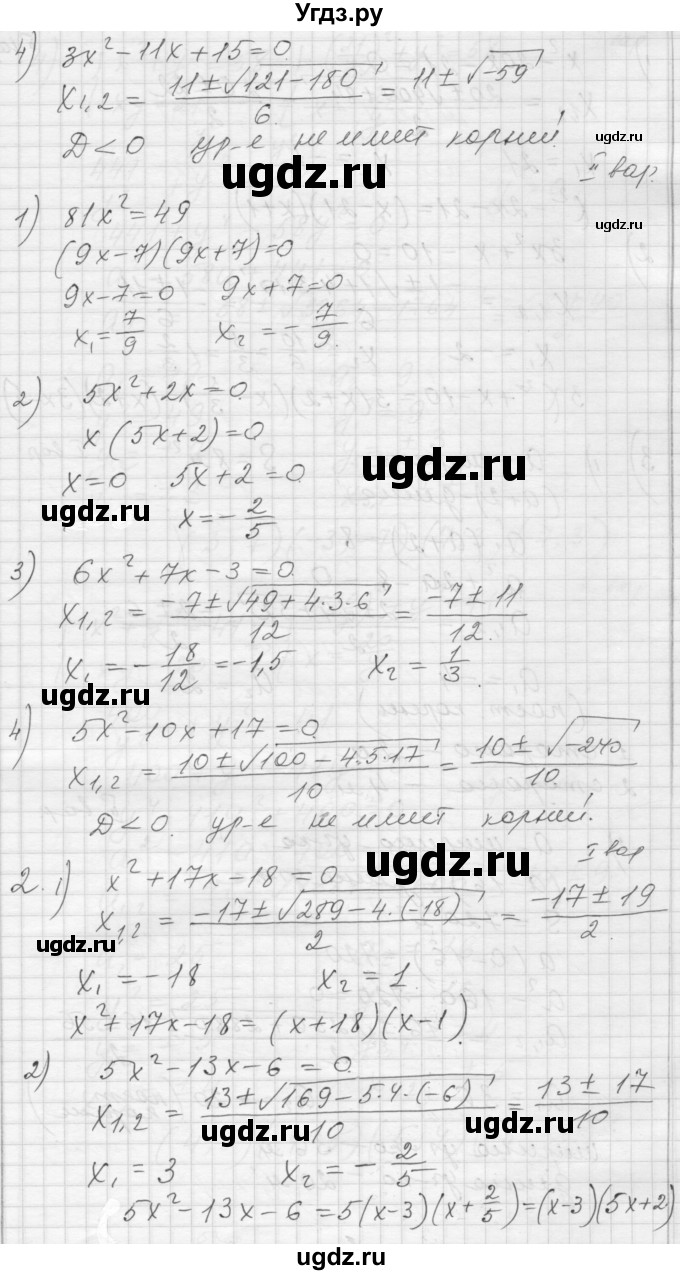 Угдз.ру
4) 3x² - 11x + 15 = 0
x₁,₂ = (11 ± √(121 - 180)) / 6 = 11 ± √-59
Д < 0 ур-е не имеет корней.
ugdz.ru
ugdz.ru
II вар.
1) 81x² = 49
ugdz.ru
(9x - 7)(9x + 7) = 0
9x - 7 = 0 9x + 7 = 0
x₁ = 7/9 x₂ = - 7/9.
2) 5x² + 2x = 0
x(5x + 2) = 0
ugdz.ru
x = 0 5x + 2 = 0
ugdz.ru
x = - 2/5
3) 6x² + 7x - 3 = 0
x₁,₂ = (-7 ± √(49 + 4·3·6)) / 12 = (-7 ± 11) / 12.
x₁ = - 18/12 = -1,5 x₂ = 1/3.
ugdz.ru
4) 5x² - 10x + 17 = 0
x₁,₂ = (10 ± √(100 - 4·5·17)) / 10 = (10 ± √-240) / 10.
Д < 0. ур-е не имеет корней.
I вар
ugdz.ru
2. 1) x² + 17x - 18 = 0
x₁,₂ = (-17 ± √(289 - 4·(-18))) / 2 = (-17 ± 19) / 2.
ugdz.ru
x₁ = -18 x₂ = 1.
x² + 17x - 18 = (x + 18)(x - 1).
2) 5x² - 13x - 6 = 0
x₁,₂ = (13 ± √(169 - 5·4·(-6))) / 10 = (13 ± 17) / 10
ugdz.ru
ugdz.ru
x₁ = 3 x₂ = - 2/5
5x² - 13x - 6 = 5(x - 3)(x + 2/5) = (x - 3)(5x + 2)
ugdz.ru